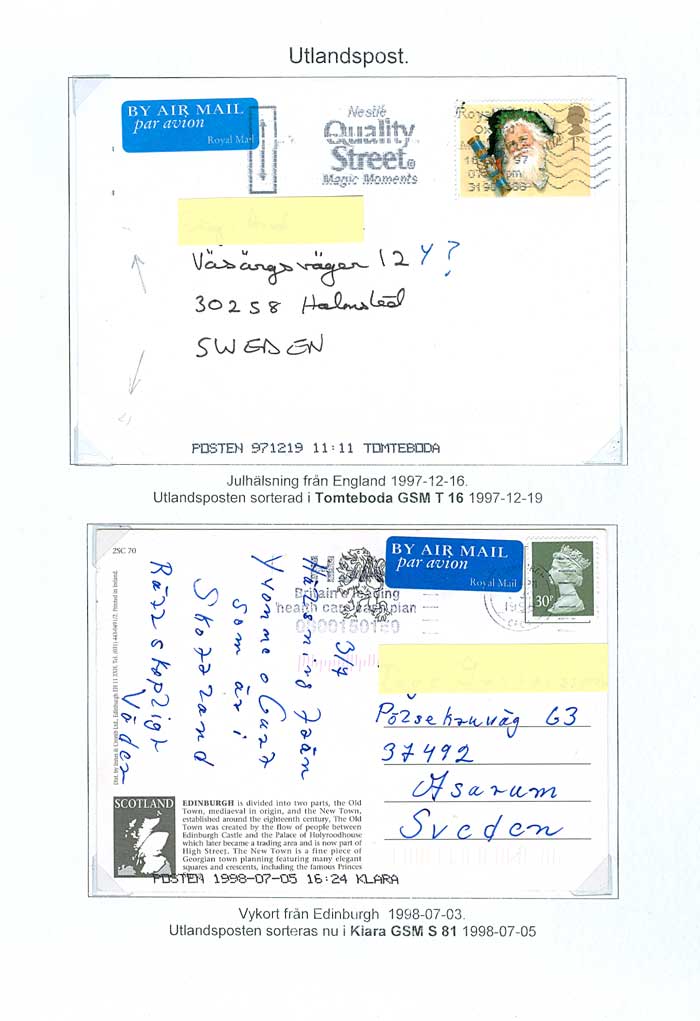 Utlandspost.
BY AIR MAIL
par avion
Royal Mail
Nestlé
Quality
Street®
Magic Moments
1ST
Väsärgsväger 12 4 ?
30258 Halmstad
SWEDEN
POSTEN 971219 11:11 TOMTEBODA
Julhälsning från England 1997-12-16.
Utlandsposten sorterad i Tomteboda GSM T 16 1997-12-19
2SC 70
BY AIR MAIL
par avion
Royal Mail
30P
Britain's leading
health care cash plan
0800150150
3/7
Hälsning från
Yvonne o Curt
som är i
Skottland
Rätt skapligt
Väder
63
37492
Asarum
Sveden
SCOTLAND
EDINBURGH is divided into two parts, the Old
Town, mediaeval in origin, and the New Town,
established around the eighteenth century. The Old
Town was created by the flow of people between
Edinburgh Castle and the Palace of Holyroodhouse
which later became a trading area and is now part of
High Street. The New Town is a fine piece of
Georgian town planning featuring many elegant
squares and crescents, including the famous Princes
POSTEN 1998-07-05 16:24 KLARA
Vykort från Edinburgh 1998-07-03.
Utlandsposten sorteras nu i Klara GSM S 81 1998-07-05